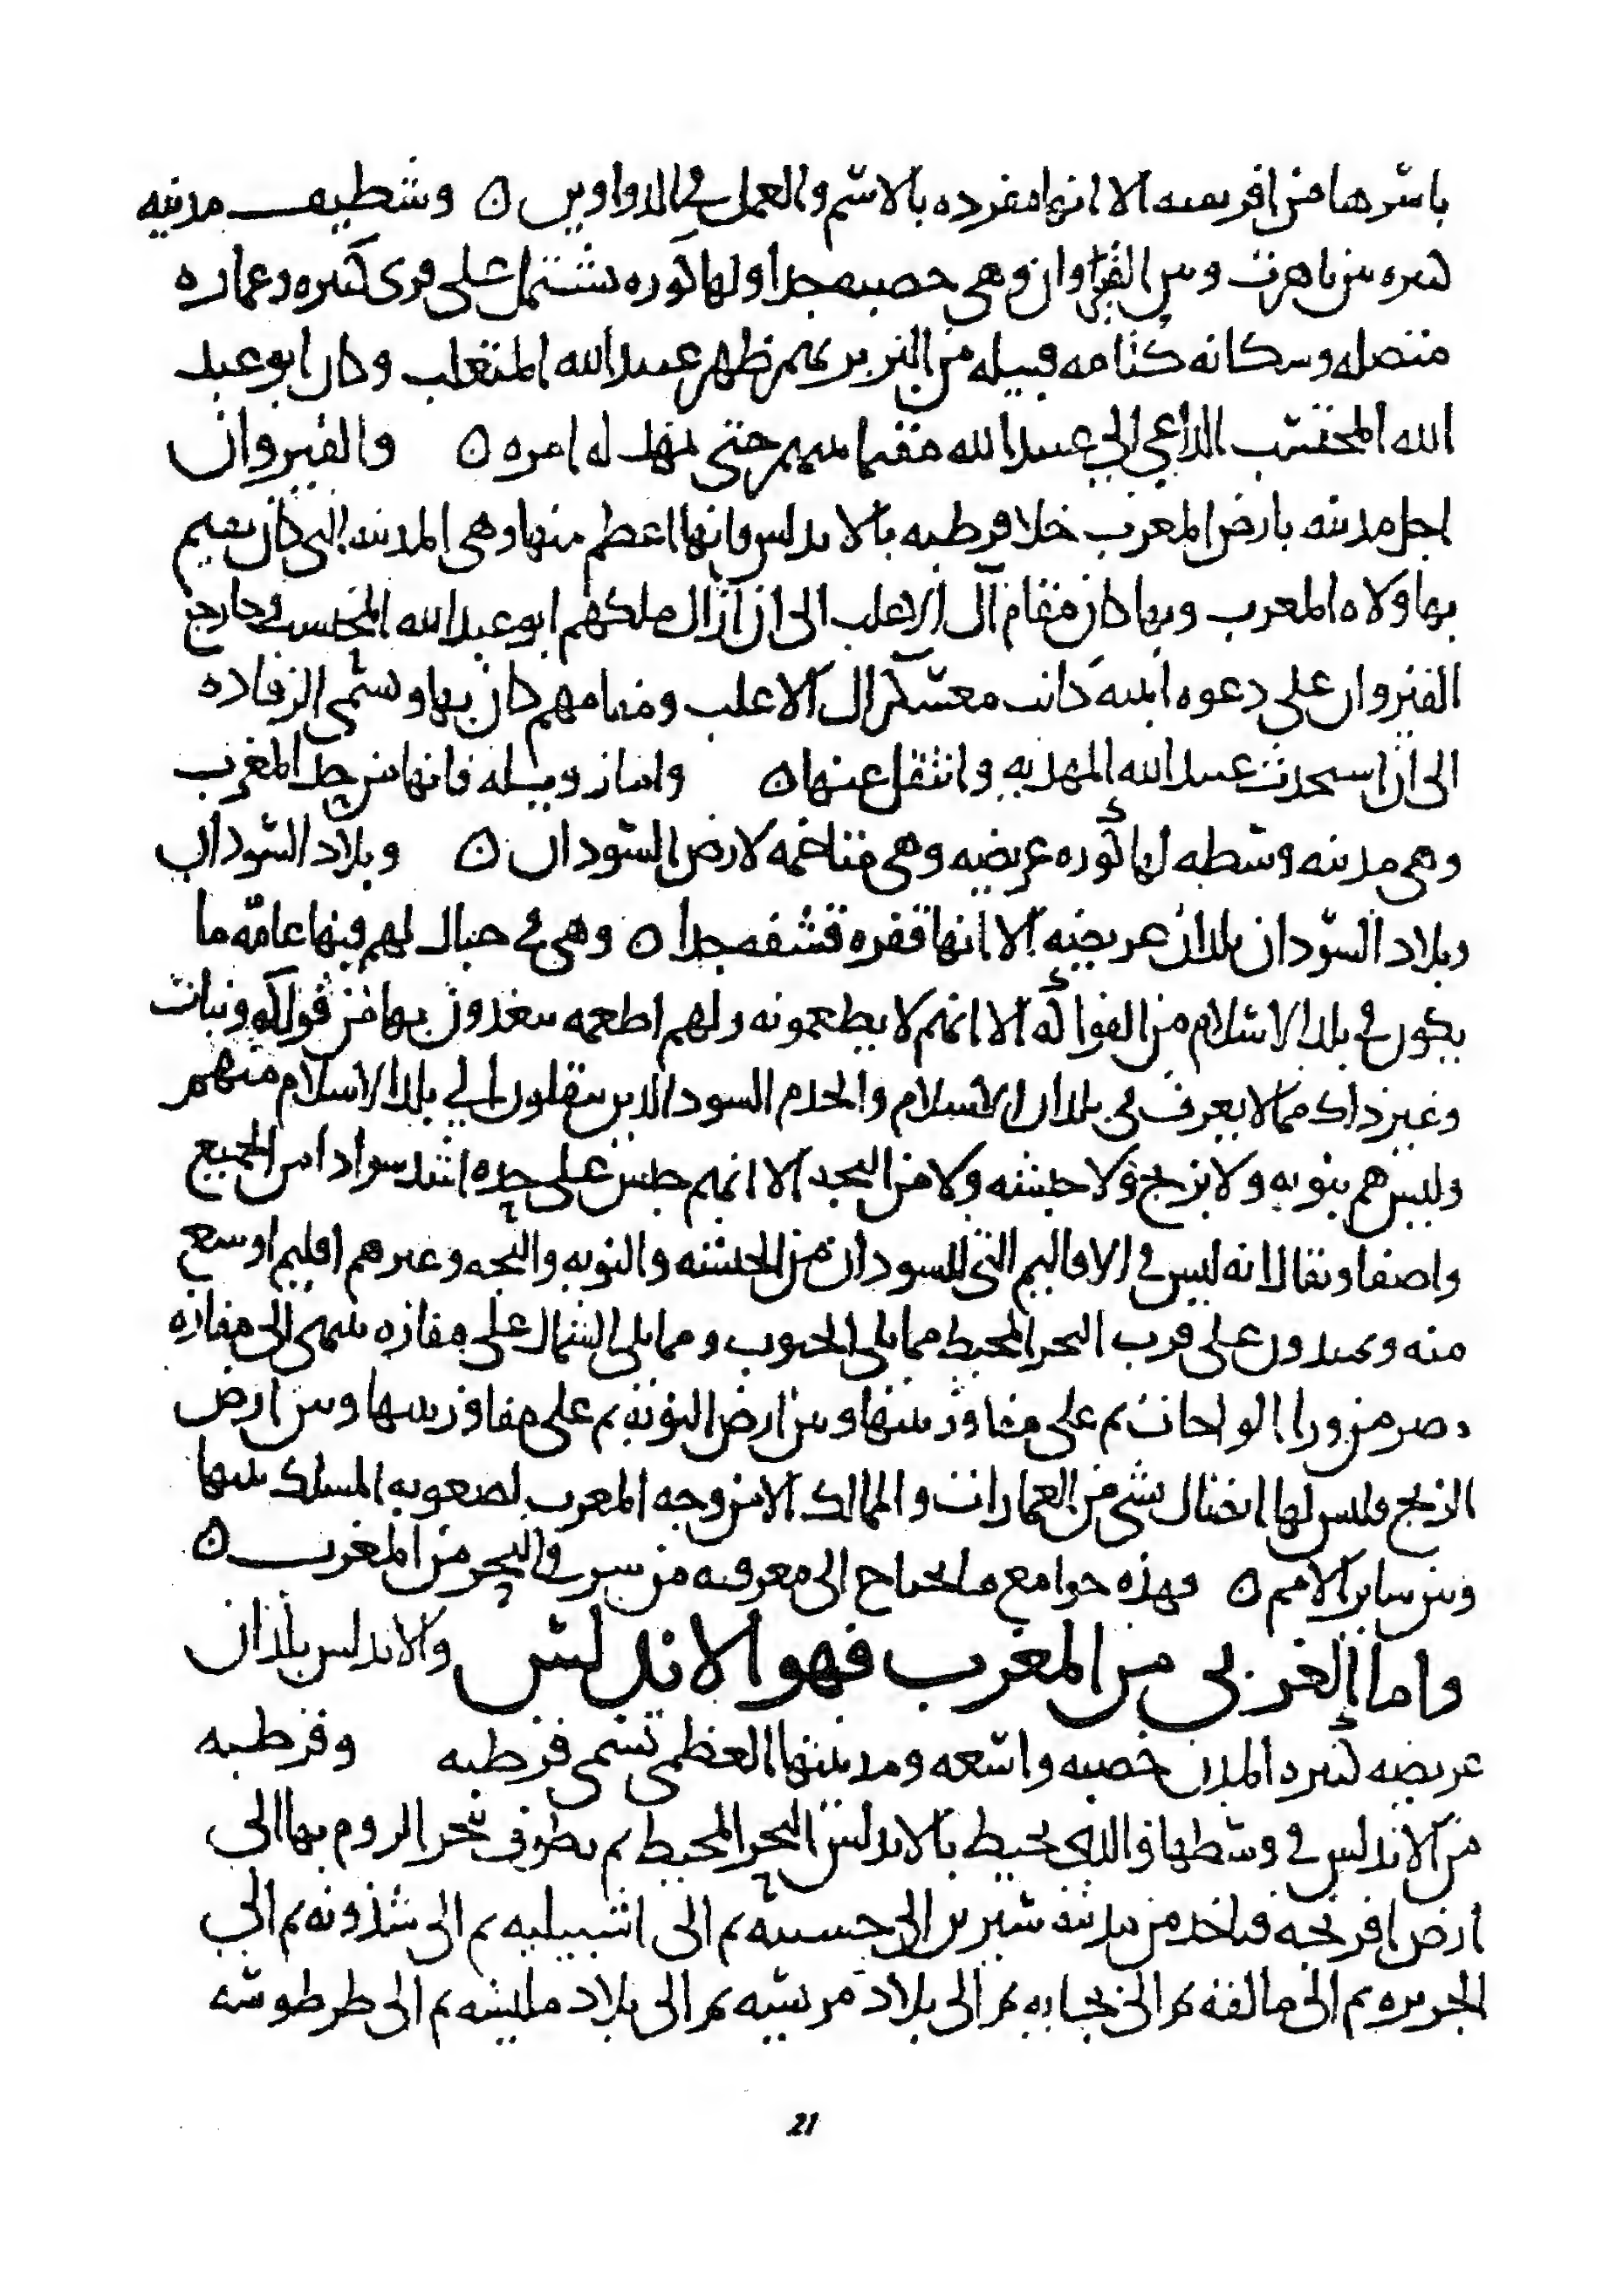 باسرها من افريقيه الا انها مفرده بالاسم والعمل في الدواوين ۝ وسطيف مدينه
كبيره بين تاهرت وبين القيروان وهي خصبه جدا ولها كوره تشتمل على قرى كثيره وعماره
متصله وسكانه كتامه قبيله من البربر بهم ظهر عبيد الله المتغلب وكان ابو عبد
الله المحتسب الداعي الى عبيد الله مقيما بينهم حتى تمهد له امره ۝ والقيروان
اجل مدينه بارض المغرب خلا قرطبه بالاندلس فانها اعظم منها وهي المدينه التي كان يقيم
بها ولاه المغرب وبها كان مقام آل الاغلب الى ان ازال ملكهم ابو عبد الله المحتسب في خارج
القيروان على دعوه ابنيه كانت معسكر آل الاغلب ومقامهم كان بها وتسمى الرقاده
الى ان استحدث عبيد الله المهديه وانتقل عنها ۝ واما زويله فانها من حد المغرب
وهي مدينه وسطه لها كوره عريضه وهي متاخمه لارض السودان ۝ وبلاد السودان
وبلاد السودان بلدان عريضه الا انها قفره قشفه جدا ۝ وهي في جبال لهم فيها عامه ما
يكون في بلد الاسلام من الفواكه الا انهم لا يطعمونه ولهم اطعمه يتغذون بها من فواكه ونبات
وغير ذلك مما لا يعرف في بلدان الاسلام والخدم السود الذين ينقلون الى بلد الاسلام منهم
وليس هم بنوبه ولا بزنج ولا حبشه ولا من البجه الا انهم جنس على حده اشد سوادا من الجميع
واصفا ويقال انه ليس في الاقاليم التي للسودان من الحبشه والنوبه والبجه وغيرهم اقليم اوسع
منه ويمتدون على قرب البحر المحيط مما يلي الجنوب ومما يلي الشمال على مفازه ينتهي الى مفازه
مصر من ورا الواحات ثم على مفاوز بينها وبين ارض النوبه ثم على مفاوز بينها وبين ارض
الزنج وليس لها اتصال بشي من العمارات والممالك الا من وجه المغرب لصعوبه المسلك بينها
وبين ساير الامم ۝ فهذه جوامع ما يحتاج الى معرفته من شرقي البحر من المغرب ۝
واما الغربي من المغرب فهو الاندلس والاندلس بلدان
عريضه كثيره المدن خصبه واسعه ومدينتها العظمى تسمى قرطبه وقرطبه
من الاندلس في وسطها والذي يحيط بالاندلس البحر المحيط ثم يطوف بحر الروم بها الى
ارض افرنجه فياخذ من مدينه شنترين الى جسبنه ثم الى اشبيليه ثم الى شذونه ثم الى
الجزيره ثم الى مالقه ثم الى بجانه ثم الى بلاد مرسيه ثم الى بلاد بلنسيه ثم الى طرطوشه
21